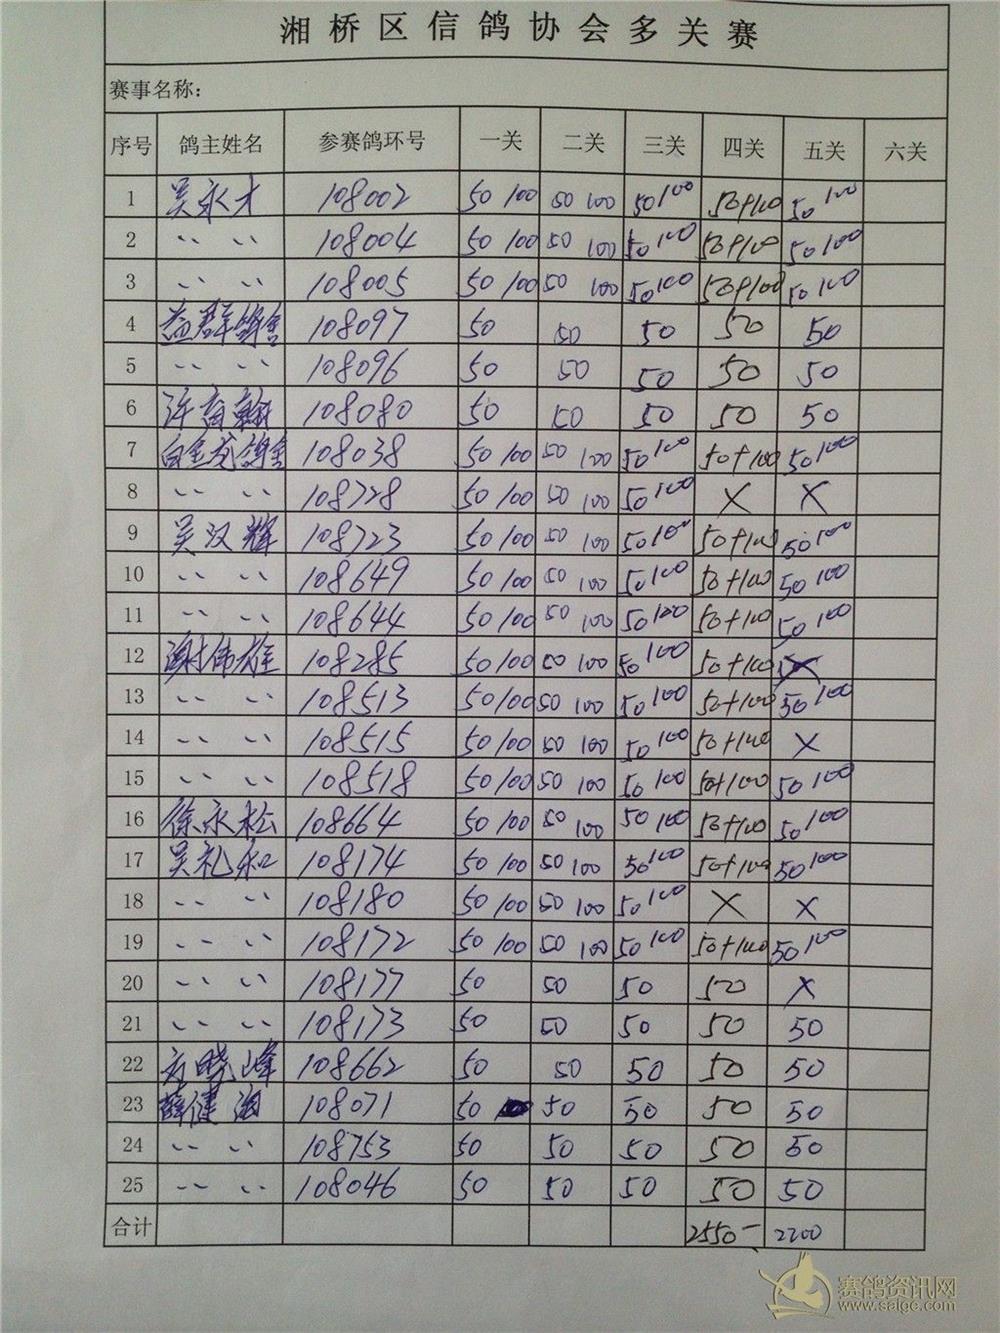 湘桥区信鸽协会多关赛
赛事名称：
序号 鸽主姓名 参赛鸽环号 一关 二关 三关 四关 五关 六关
1 吴永才 108002 50 100 50 100 50 100 50+100 50 100
2 〃 〃 108004 50 100 50 100 50 100 50+100 50 100
3 〃 〃 108005 50 100 50 100 50 100 50+100 50 100
4 益群鸽舍 108097 50 50 50 50 50
5 〃 〃 108096 50 50 50 50 50
6 许 108080 50 50 50 50 50
7 白金龙鸽舍 108038 50 100 50 100 50 100 50+100 50 100
8 〃 〃 108728 50 100 50 100 50 100 × ×
9 吴汉辉 108723 50 100 50 100 50 100 50+100 50 100
10 〃 〃 108649 50 100 50 100 50 100 50+100 50 100
11 〃 〃 108644 50 100 50 100 50 100 50+100 50 100
12 谢伟雄 108285 50 100 50 100 50 100 50+100 ×
13 〃 〃 108513 50 100 50 100 50 100 50+100 50 100
14 〃 〃 108515 50 100 50 100 50 100 50+100 ×
15 〃 〃 108518 50 100 50 100 50 100 50+100 50 100
16 徐永松 108664 50 100 50 100 50 100 50+100 50 100
17 吴礼和 108174 50 100 50 100 50 100 50+100 50 100
18 〃 〃 108180 50 100 50 100 50 100 × ×
19 〃 〃 108172 50 100 50 100 50 100 50+100 50 100
20 〃 〃 108177 50 50 50 50 ×
21 〃 〃 108173 50 50 50 50 50
22 方晓峰 108662 50 50 50 50 50
23 薛健 108071 50 50 50 50 50
24 〃 〃 108753 50 50 50 50 50
25 〃 〃 108046 50 50 50 50 50
合计 2550- 2200
赛鸽资讯网
www.saige.com